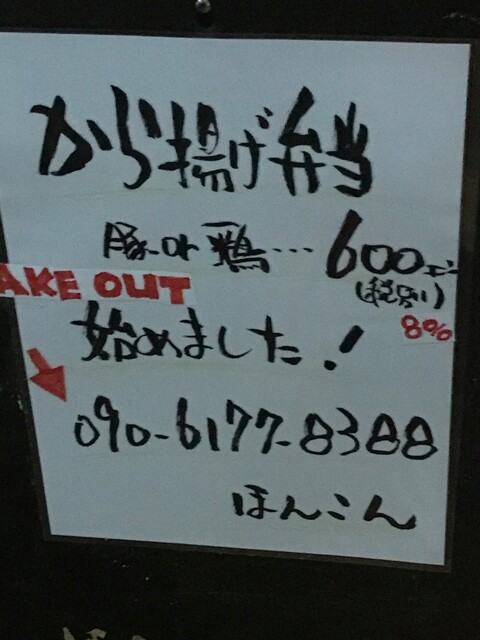 から揚げ弁当
豚or鶏…600エン
(税別)
8%
AKE OUT
始めました!
090-6177-8388
ほんこん